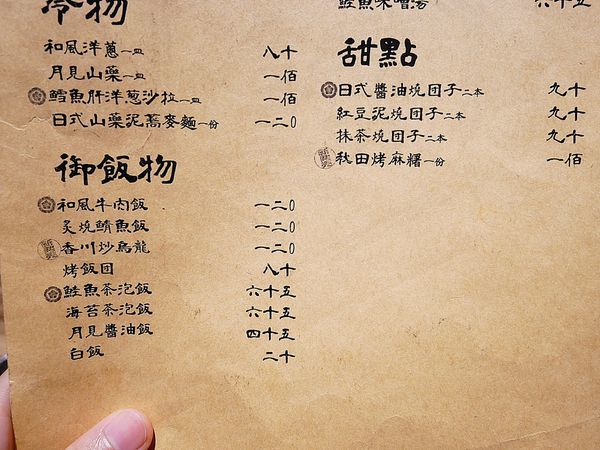 冷物
和風洋蔥一皿 八十
月見山藥一皿 一佰
鱈魚肝洋葱沙拉一皿 一佰
日式山藥泥蕎麥麵一份 一二0
御飯物
和風牛肉飯 一二0
炙燒鯖魚飯 一二0
香川炒烏龍 一二0
烤飯团 八十
鮭魚茶泡飯 六十五
海苔茶泡飯 六十五
月見醬油飯 四十五
白飯 二十
鮭魚味噌湯 六十五
甜點
日式醬油燒团子二本 九十
紅豆泥燒团子二本 九十
抹茶燒团子二本 九十
秋田烤麻糬一份 一佰